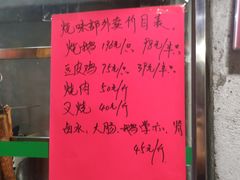 烧味部外卖价目表
烧鹅136元/只 98元/半只
豆皮鸡75元/只 39元/半只
烧肉 50元/斤
叉烧 40元/斤
卤水、大肠、鹅掌
45元/斤